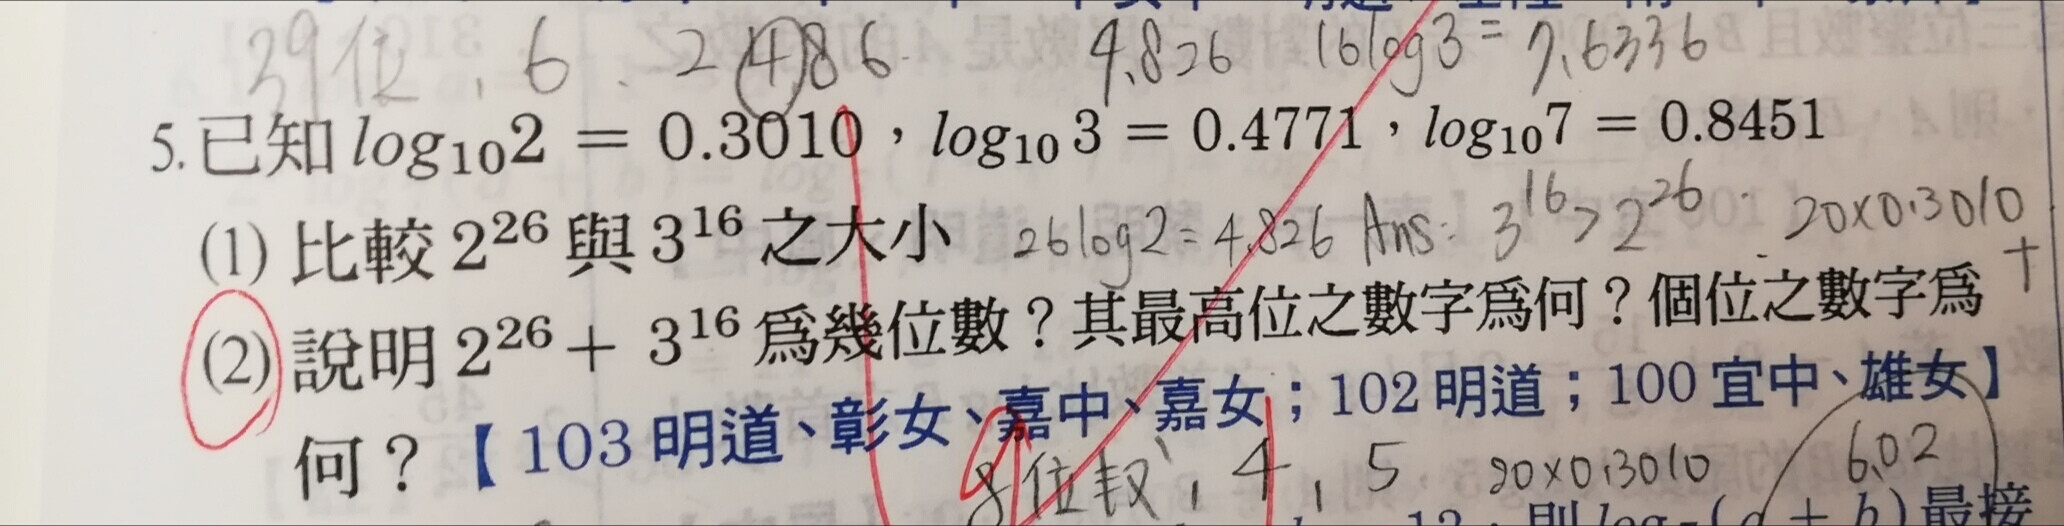 39位,6. 2486 4.826 16log3=7.6336
5.已知 log₁₀2 = 0.3010,log₁₀3 = 0.4771,log₁₀7 = 0.8451
(1) 比較 2²⁶ 與 3¹⁶ 之大小 26log2=4.826 Ans: 3¹⁶>2²⁶ 20×0.3010
+
(2) 說明 2²⁶ + 3¹⁶ 爲幾位數?其最高位之數字爲何?個位之數字爲
何?【103 明道、彰女、嘉中、嘉女;102 明道;100 宜中、雄女】
8位数,4,5 20×0.3010 6.02